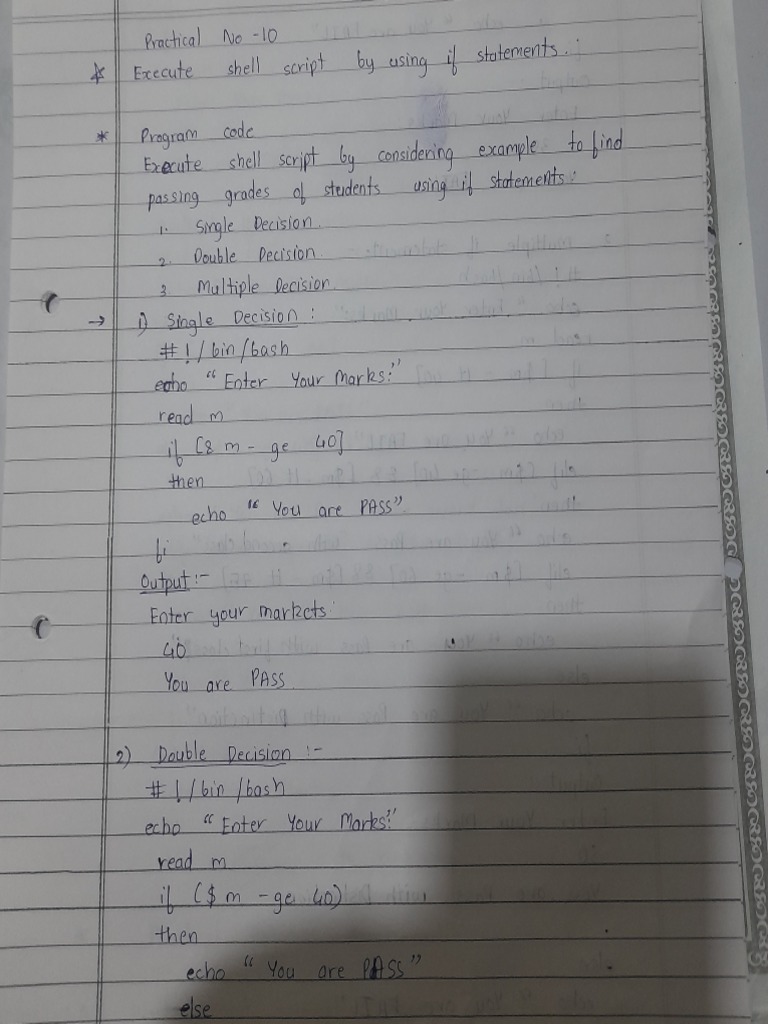 Practical No -10
* Execute shell script by using if statements.
* Program code
Execute shell script by considering example to find
passing grades of students using if statements:
1. Single Decision.
2. Double Decision.
3. Multiple Decision.
→ 1) Single Decision :
#!/bin/bash
echo "Enter Your Marks:"
read m
if [$ m - ge 40]
then
echo "You are PASS"
fi
Output :-
Enter your markets:
40
You are PASS
2) Double Decision :-
#!/bin/bash
echo "Enter Your Marks:"
read m
if ($ m - ge 40)
then
echo "You are PASS"
else